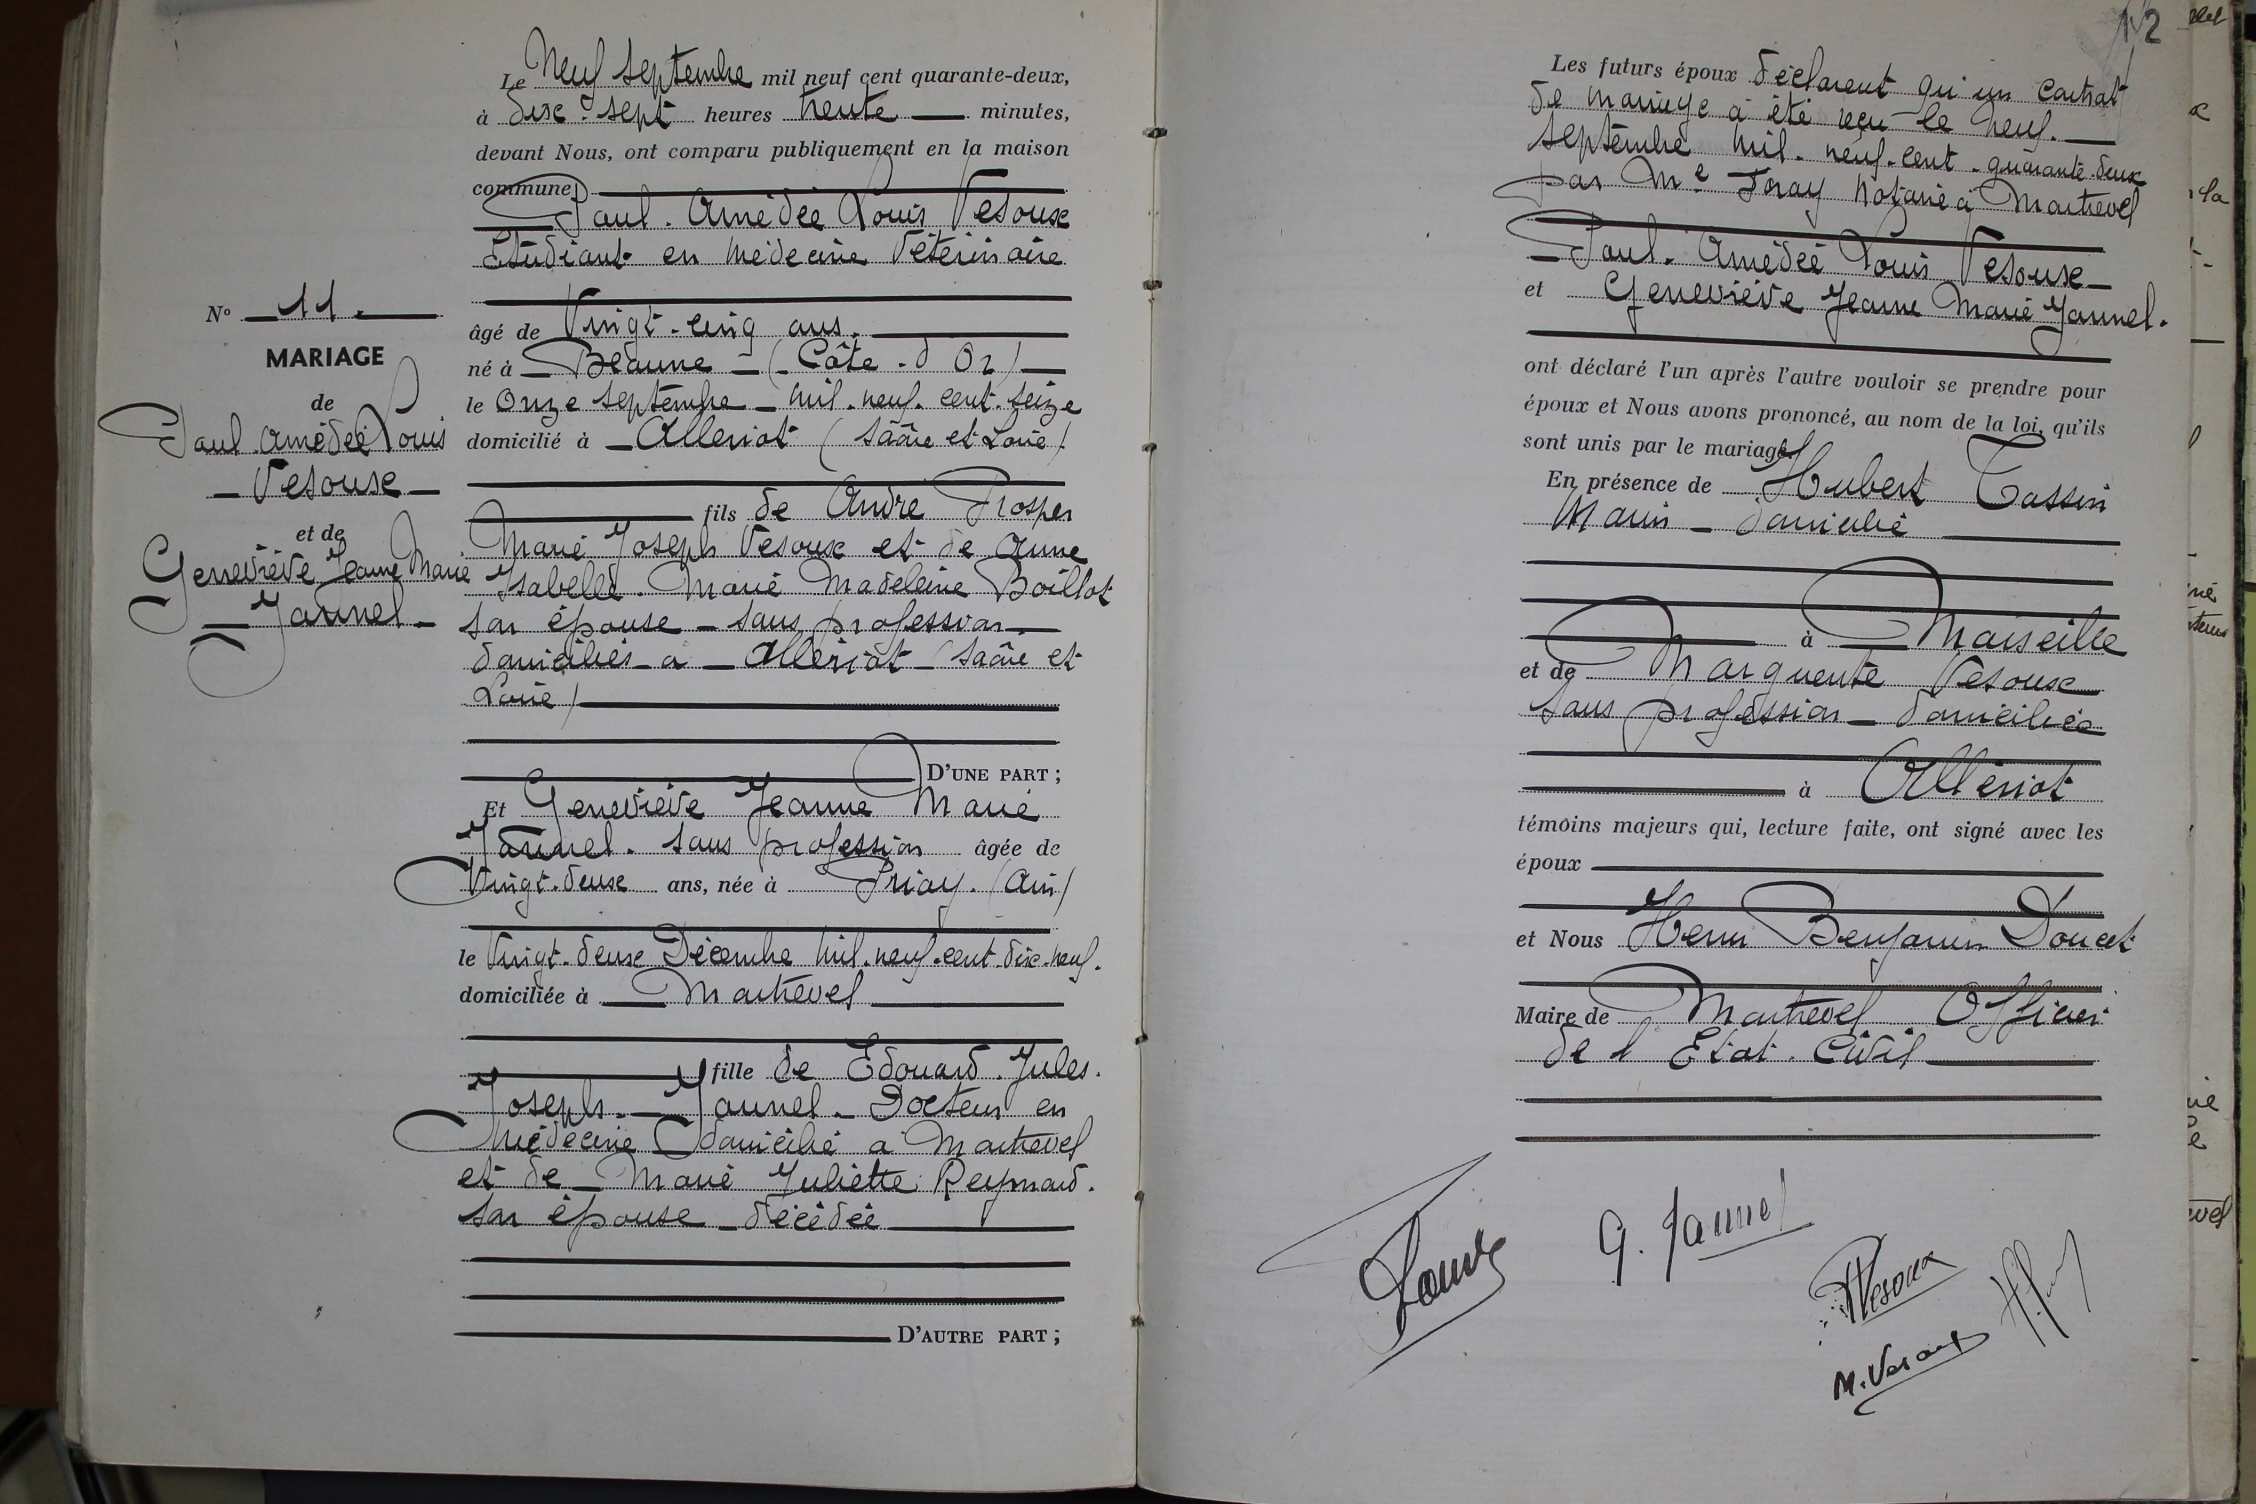 N° 11.
MARIAGE
de
Paul. Amédée Louis
Vesoux
et de
Geneviève Jeanne Marie
Jannel
Le Neuf septembre mil neuf cent quarante-deux,
à dix-sept heures trente minutes,
devant Nous, ont comparu publiquement en la maison
commune
Paul. Amédée Louis Vesoux
Etudiant en Médecine Vétérinaire
âgé de Vingt-cinq ans.
né à Beaune (Côte-d'Or)
le Onze septembre mil-neuf-cent-seize
domicilié à Allériot (Saône et Loire)
fils de André Prosper
Marie Joseph Vesoux et de Anne
Isabelle. Marie Madeleine Boillot
son épouse - sans profession
domiciliés à Allériot (Saône et
Loire)
D'UNE PART ;
Et Geneviève Jeanne Marie
Jannel. sans profession âgée de
Vingt-deux ans, née à Priay. (Ain)
le Vingt-deux Décembre mil-neuf-cent-dix-neuf.
domiciliée à Montrevel
fille de Edouard. Jules.
Joseph. Jannel. Docteur en
Médecine domicilié à Montrevel
et de Marie Juliette Reymond.
son épouse décédée
D'AUTRE PART ;
12
Les futurs époux déclarent qu'un contrat
de mariage a été reçu le neuf.
septembre mil-neuf-cent-quarante-deux
par Me Joray notaire à Montrevel
Paul. Amédée Louis Vesoux
et Geneviève Jeanne Marie Jannel.
ont déclaré l'un après l'autre vouloir se prendre pour
époux et Nous avons prononcé, au nom de la loi, qu'ils
sont unis par le mariage.
En présence de Hubert Tassin
Marin - domicilié
à Marseille
et de Marguerite Vesoux
sans profession - domiciliée
à Allériot
témoins majeurs qui, lecture faite, ont signé avec les
époux
et Nous Henri Benjamin Doucet
Maire de Montrevel Officier
de l'Etat. Civil
G. Jannel
PVesoux
M. Vesoux